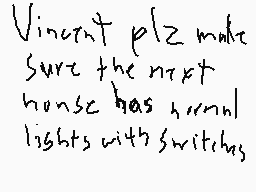 Vincent plz make
sure the next
house has normal
lights with switches